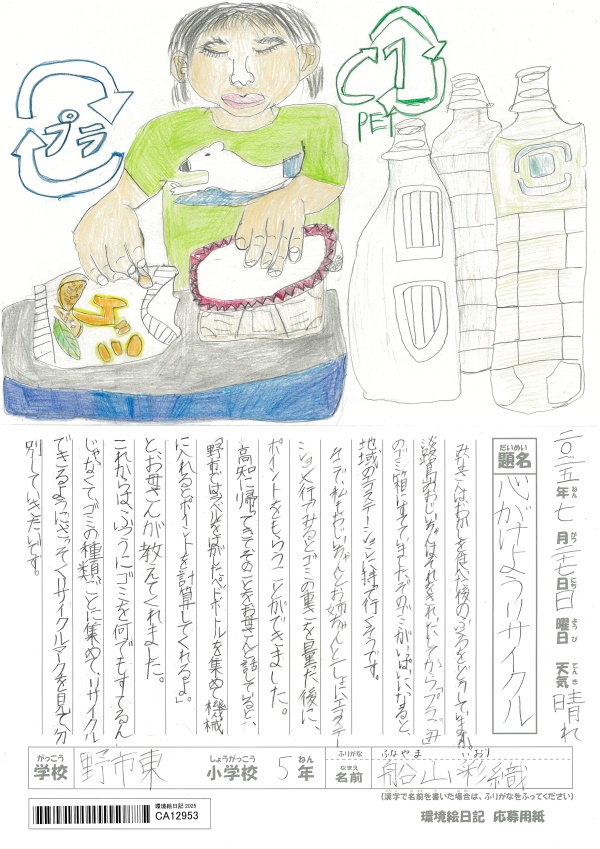 プラ
1
PET
二〇二五年七月二七日日曜日 天気晴れ
ねん
がつ
にち
ようび
てんき
だいめい
題名
心がけようリサイクル
みなさんはおかしを食べた後のふくろをどうしていますか。
淡路島のおじいちゃんはそれをきれいにしてからプラごみ用
のゴミ箱にすてています。そのゴミがいっぱいになると、
地域のエコステーションに持って行くそうです。
そこで私もおじいちゃんとお姉ちゃんといっしょにエコステー
ションへ行ってみるとゴミの重さを量った後に、
ポイントをもらうことができました。
高知に帰ってきてそのことをお母さんと話していると、
「野市ではラベルをはがしたペットボトルを集めて機械
に入れるとポイントを計算してくれるよ」
と、お母さんが教えてくれました。
これからは、ふつうにゴミを何でもすてるん
じゃなくて、ゴミの種類ごとに集めて、リサイクル
できるようにさっそくリサイクルマークを見て分
別していきたいです。
がっこう
学校
野市東
しょうがっこう
小学校
5
ねん
年
ふりがな
ふなやま いおり
なまえ
名前
船山 彩織
(漢字で名前を書いた場合は、ふりがなをふってください)
環境絵日記 2025
CA12953
環境絵日記 応募用紙